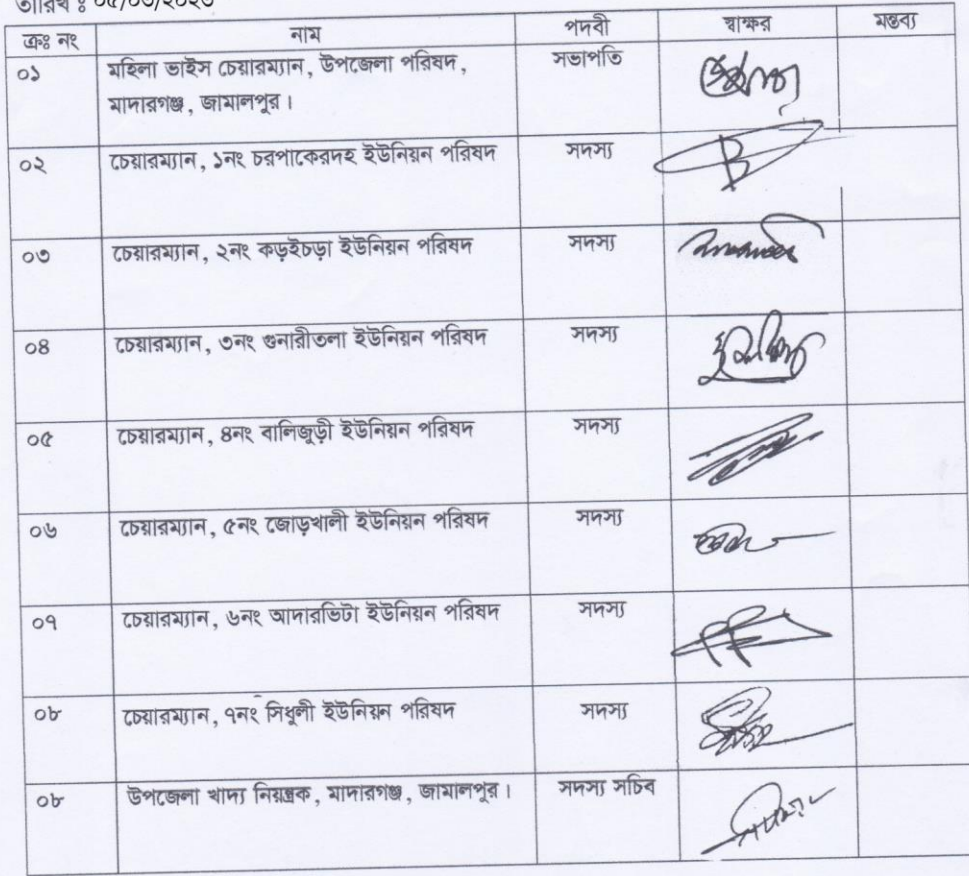 তারিখ ঃ ০৫/০৩/২০২৩
ক্রঃ নং নাম পদবী স্বাক্ষর মন্তব্য
০১ মহিলা ভাইস চেয়ারম্যান, উপজেলা পরিষদ, সভাপতি
মাদারগঞ্জ, জামালপুর।
০২ চেয়ারম্যান, ১নং চরপাকেরদহ ইউনিয়ন পরিষদ সদস্য
০৩ চেয়ারম্যান, ২নং কড়ইচড়া ইউনিয়ন পরিষদ সদস্য
০৪ চেয়ারম্যান, ৩নং গুনারীতলা ইউনিয়ন পরিষদ সদস্য
০৫ চেয়ারম্যান, ৪নং বালিজুড়ী ইউনিয়ন পরিষদ সদস্য
০৬ চেয়ারম্যান, ৫নং জোড়খালী ইউনিয়ন পরিষদ সদস্য
০৭ চেয়ারম্যান, ৬নং আদারভিটা ইউনিয়ন পরিষদ সদস্য
০৮ চেয়ারম্যান, ৭নং সিধুলী ইউনিয়ন পরিষদ সদস্য
০৮ উপজেলা খাদ্য নিয়ন্ত্রক, মাদারগঞ্জ, জামালপুর। সদস্য সচিব